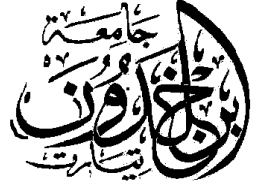 جَامِعَة
ابن خَلدُون
تِيَارت